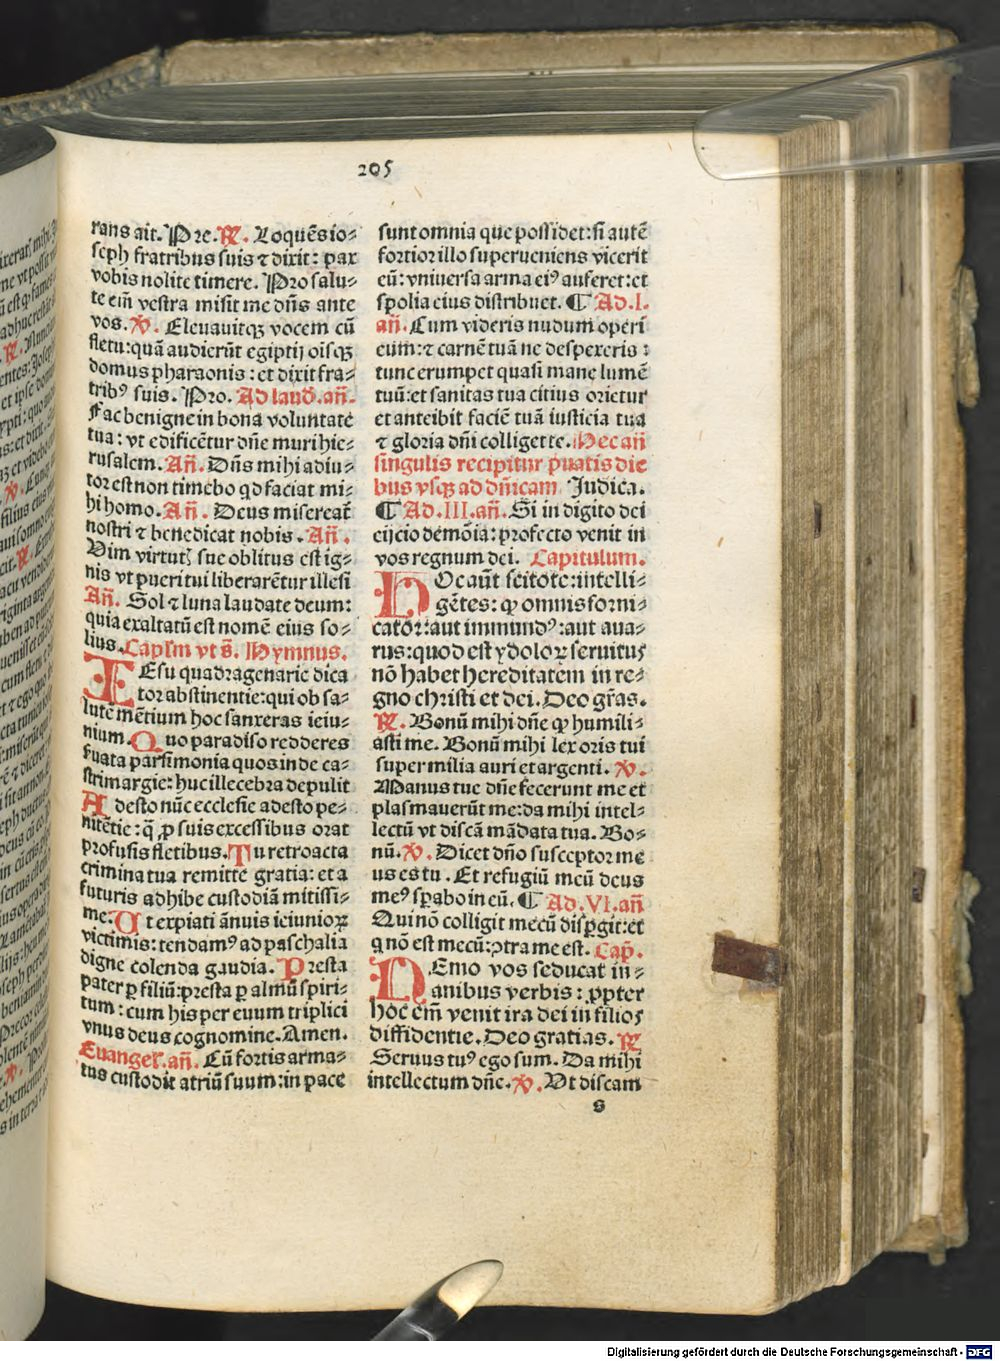 205
rans ait. Pre. ℟. Loquēs io⸗
seph fratribus suis ⁊ dixit: pax
vobis nolite timere. Pro salu⸗
te em̄ vestra misit me dn̄s ante
vos. ℣. Eleuauitqꝫ vocem cū
fletu: quā audierūt egiptij oīsqꝫ
domus pharaonis: et dixit fra⸗
tribꝰ suis. Pro. Ad laud̄. an̄.
Fac benigne in bona voluntate
tua: vt edificētur dn̄e muri hie⸗
rusalem. An̄. Dn̄s mihi adiu⸗
tor est non timebo qd faciat mi⸗
hi homo. An̄. Deus misereat̄
nostri ⁊ benedicat nobis. An̄.
Vim virtutꝭ sue oblitus est ig⸗
nis vt pueri tui liberarētur illesi
An̄. Sol ⁊ luna laudate deum:
quia exaltatū est nomē eius so⸗
lius. Capl̄m vt s̄. Hymnus.
IEsu quadragenarie dica
tor abstinentie: qui ob sa⸗
lutē mētium hoc sanxeras ieiu⸗
nium. Quo paradiso redderes
suata parsimonia quos inde ca⸗
strimargie: huc illecebra depulit
Adesto nūc ecclesie adesto pe⸗
nitētie: q̄ ꝓ suis excessibus orat
profusis fletibus. Tu retroacta
crimina tua remitte gratia: et a
futuris adhibe custodiā mitissi⸗
me. Ut expiati ānuis ieiunioꝝ
victimis: tendamꝰ ad paschalia
digne colenda gaudia. Presta
pater ꝑ filiū: presta ꝑ almū spiri⸗
tum: cum his per euum triplici
vnus deus cognomine. Amen.
Euangel̄. an̄. Cū fortis arma⸗
tus custodit atriū suum: in pace
sunt omnia que possidet: si autē
fortior illo superueniens vicerit
eū: vniuersa arma eiꝰ auferet: et
spolia eius distribuet. ¶ Ad. I.
an̄. Cum videris nudum operi
eum: ⁊ carnē tuā ne despexeris:
tunc erumpet quasi mane lumē
tuū: et sanitas tua citius orietur
et anteibit faciē tuā iusticia tua
⁊ gloria dn̄i colliget te. Hec an̄
singulis recipitur p̄uatis die
bus vsqꝫ ad dn̄icam Judica.
¶ Ad. III. an̄. Si in digito dei
eijcio demōia: profecto venit in
vos regnum dei. Capitulum.
HOc aūt scitote: intelli⸗
gētes: ꝙ omnis forni⸗
cator: aut immundꝰ: aut aua⸗
rus: quod est ydoloꝝ seruitus
nō habet hereditatem in re⸗
gno christi et dei. Deo gr̄as.
℟. Bonū mihi dn̄e ꝙ humili⸗
asti me. Bonū mihi lex oris tui
super milia auri et argenti. ℣.
Manus tue dn̄e fecerunt me et
plasmauerūt me: da mihi intel⸗
lectū vt discā mādata tua. Bo⸗
nū. ℣. Dicet dn̄o susceptor me
us es tu. Et refugiū meū deus
meꝰ sꝑabo in eū. ¶ Ad. VI. an̄
Qui nō colligit mecū disꝑgit: et
q nō est mecū: ꝯtra me est. Cap̄.
NEmo vos seducat in⸗
anibus verbis: ꝓpter
hoc em̄ venit ira dei in filios
diffidentie. Deo gratias. ℟
Seruus tuꝰ ego sum. Da mihi
intellectum dn̄e. ℣. Vt discam
s
Digitalisierung gefördert durch die Deutsche Forschungsgemeinschaft - DFG